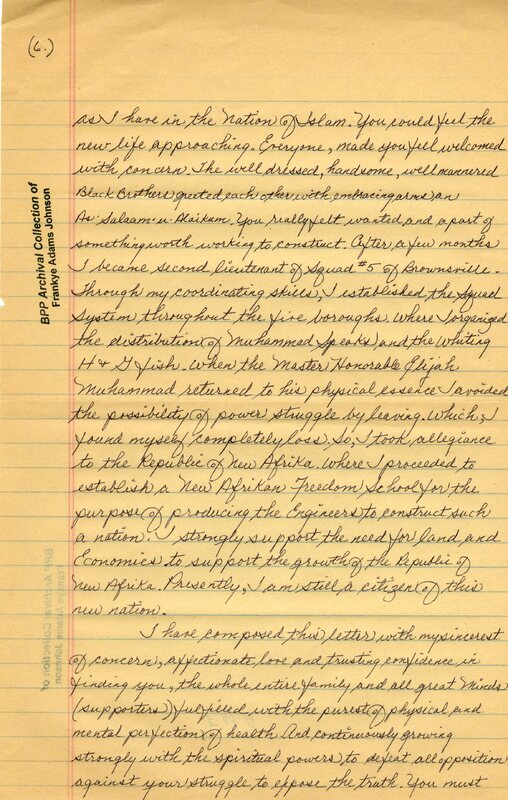 (6.)
BPP Archival Collection of
Frankye Adams Johnson
as I have in the Nation of Islam. You could feel the
new life approaching. Everyone, made you feel welcomed
with concern. The well dressed, handsome, well mannered
Black Brothers greeted each other with embracing arms an
As-Salaam-u-Alaikum. You really felt wanted and a part of
something worth working to construct. After a few months
I became second lieutenant of Squad #5 of Brownsville.
Through my coordinating skills, I established, the Squad
System throughout the five boroughs. Where I organized
the distribution of Muhammad Speaks, and the Whiting
H & G fish. When the Master Honorable Elijah
Muhammad returned to his physical essence I avoided
the possibility of power struggle by leaving. Which, I
found myself completely loss. So, I took allegiance
to the Republic of New Afrika. Where I proceeded to
establish a New Afrikan Freedom School for the
purpose of producing the Engineers to construct such
a nation. I strongly support the need for land, and
Economics to support the growth of the Republic of
New Afrika. Presently, I am still a citizen of this
new nation.
I have composed this letter with my sincerest
of concern, affectionate love and trusting confidence in
finding you, the whole entire family and all great Minds
(supporters) fulfilled with the purest of physical and
mental perfection of health. And continuously growing
strongly with the spiritual powers to defeat all opposition
against your struggle to expose the truth. You must
BPP Archival Collection of
Frankye Adams Johnson